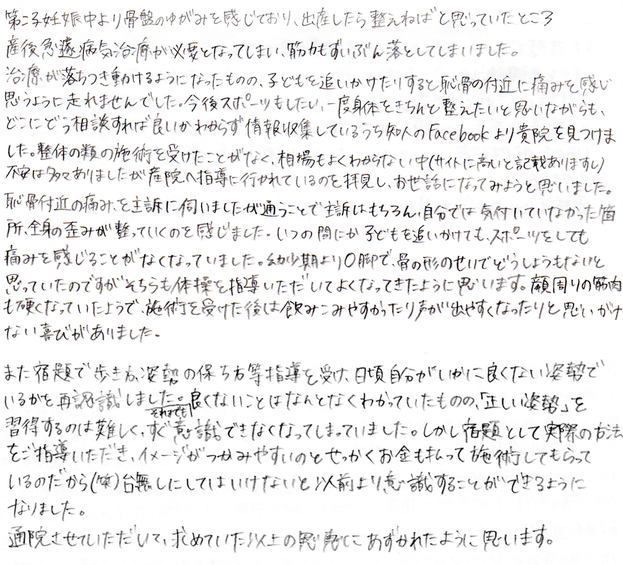 第二子妊娠中より骨盤のゆがみを感じており、出産したら整えねばと思っていたところ
産後急遽病気治療が必要となってしまい、筋力もずいぶん落としてしまいました。
治療が落ちつき動けるようになったものの、子どもを追いかけたりすると恥骨の付近に痛みを感じ
思うように走れませんでした。今後スポーツもしたいし、一度身体をきちんと整えたいと思いながらも、
どこにどう相談すれば良いかわからず情報収集しているうち知人のFacebookより貴院を見つけま
した。整体の類の施術を受けたことがなく、相場もよくわからない中(サイトに高いと記載ありますし)
不安は多々ありましたが産院へ指導に行かれているのを拝見し、お世話になってみようと思いました。
恥骨付近の痛みを主訴に伺いましたが通うことで主訴はもちろん、自分では気付いていなかった箇
所、全身の歪みが整っていくのを感じました。いつの間にか子どもを追いかけても、スポーツをしても
痛みを感じることがなくなっていました。幼少期よりO脚で、骨の形のせいでどうしようもないと
思っていたのですがそちらも体操を指導いただいてよくなってきたように思います。顔周りの筋肉
も硬くなっていたようで、施術を受けた後は飲みこみやすかったり声が出やすくなったりと思いがけ
ない喜びがありました。
また宿題で歩き方、姿勢の保ち方等指導を受け、日頃自分がいかに良くない姿勢で
いるかを再認識しました。良くないことはなんとなくわかっていたものの、「正しい姿勢」を
それでも
習得するのは難しく、すぐ意識できなくなってしまっていました。しかし宿題として実際の方法
をご指導いただき、イメージがつかみやすいのとせっかくお金も払って施術してもらって
いるのだから(笑)台無しにしてはいけないと以前より意識することができるように
なりました。
通院させていただいて、求めていた以上の恩恵にあずかれたように思います。